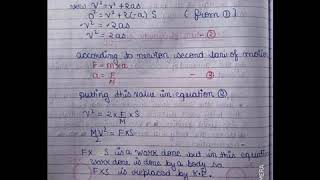 v² = v² + 2as
0² = v² + 2(-a) S (from ①)
-v² = -2as
v² = 2as - ②
according to newton second law of motion
F = m×a
a = F/M - ③
putting this value in equation ②
V² = 2×F/M×S
MV²/2 = F×S
F× S is a work done but in this equation
work done is done by a body so
F×S is replaced by K.E.